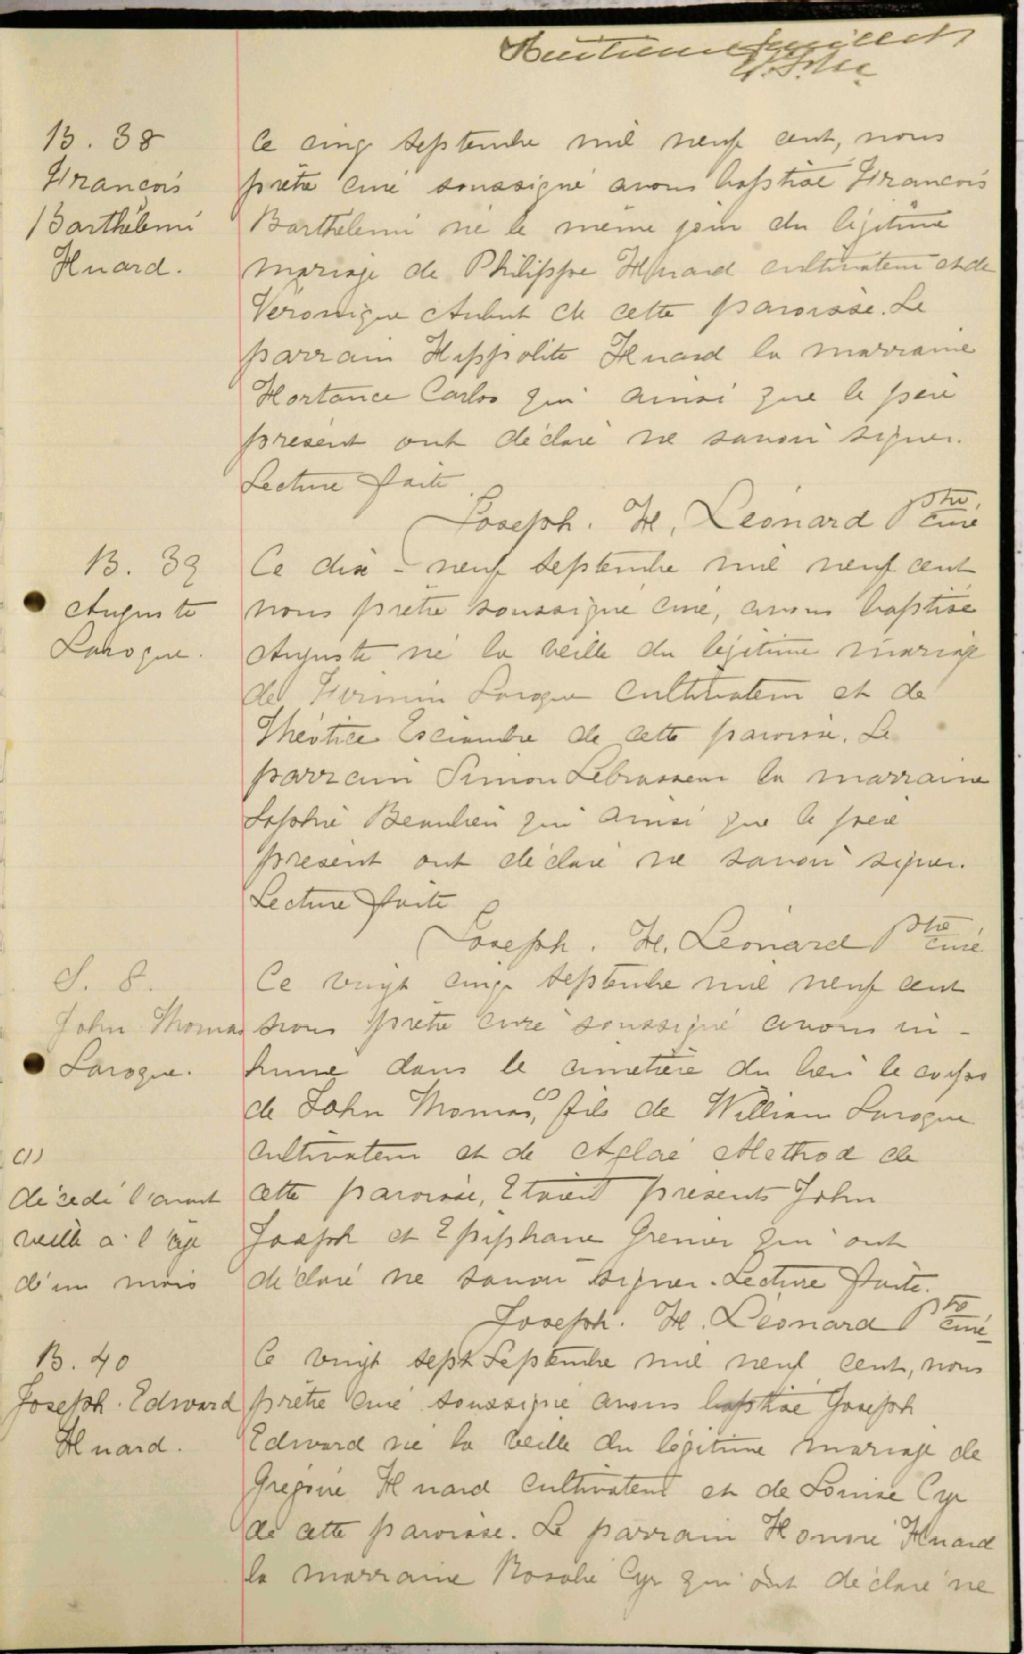 Huitieme feuillet
B. 38
François
Barthélemi
Huard.
Ce cinq septembre mil neuf cent, nous
prêtre curé soussigné avons baptisé François
Barthélemi né le même jour du légitime
mariage de Philippe Huard cultivateur et de
Véronique Aubut de cette paroisse. Le
parrain Hippolite Huard la marraine
Hortance Carbo qui ainsi que le père
présent ont déclaré ne savoir signer.
Lecture faite
Joseph. H. Léonard Ptre curé
B. 39
Auguste
Laroque.
Ce dix-neuf septembre mil neuf cent
nous prêtre soussigné curé, avons baptisé
Auguste né la veille du légitime mariage
de Firmin Laroque cultivateur et de
Théotice Esciambre de cette paroisse. Le
parrain Simon Lebrasseur la marraine
Sophie Beaulieu qui ainsi que le père
présent ont déclaré ne savoir signer.
Lecture faite
Joseph. H. Léonard Ptre curé
S. 8.
John Thomas
Laroque.
(1)
décédé l'avant
veille à l'âge
d'un mois
Ce vingt cinq septembre mil neuf cent
nous prêtre curé soussigné avons in-
humé dans le cimetière du lieu le corps
de John Thomas, (1) fils de William Laroque
cultivateur et de Aglaé Method de
cette paroisse, Etaient présents John
Joseph et Epiphane Grenier qui ont
déclaré ne savoir signer. Lecture faite.
Joseph. H. Léonard Ptre curé
B. 40
Joseph. Edward
Huard.
Ce vingt sept Septembre mil neuf cent, nous
prêtre curé soussigné avons baptisé Joseph
Edward né la veille du légitime mariage de
Grégoire Huard cultivateur et de Louise Cyr
de cette paroisse. Le parrain Honoré Huard
la marraine Rosalie Cyr qui ont déclaré ne